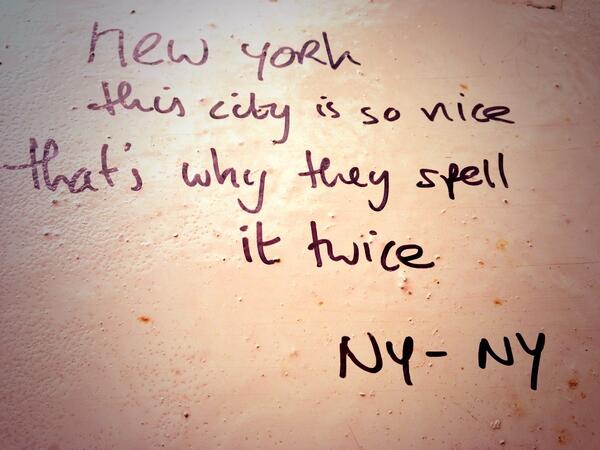 New york
this city is so nice
that's why they spell
it twice
NY- NY